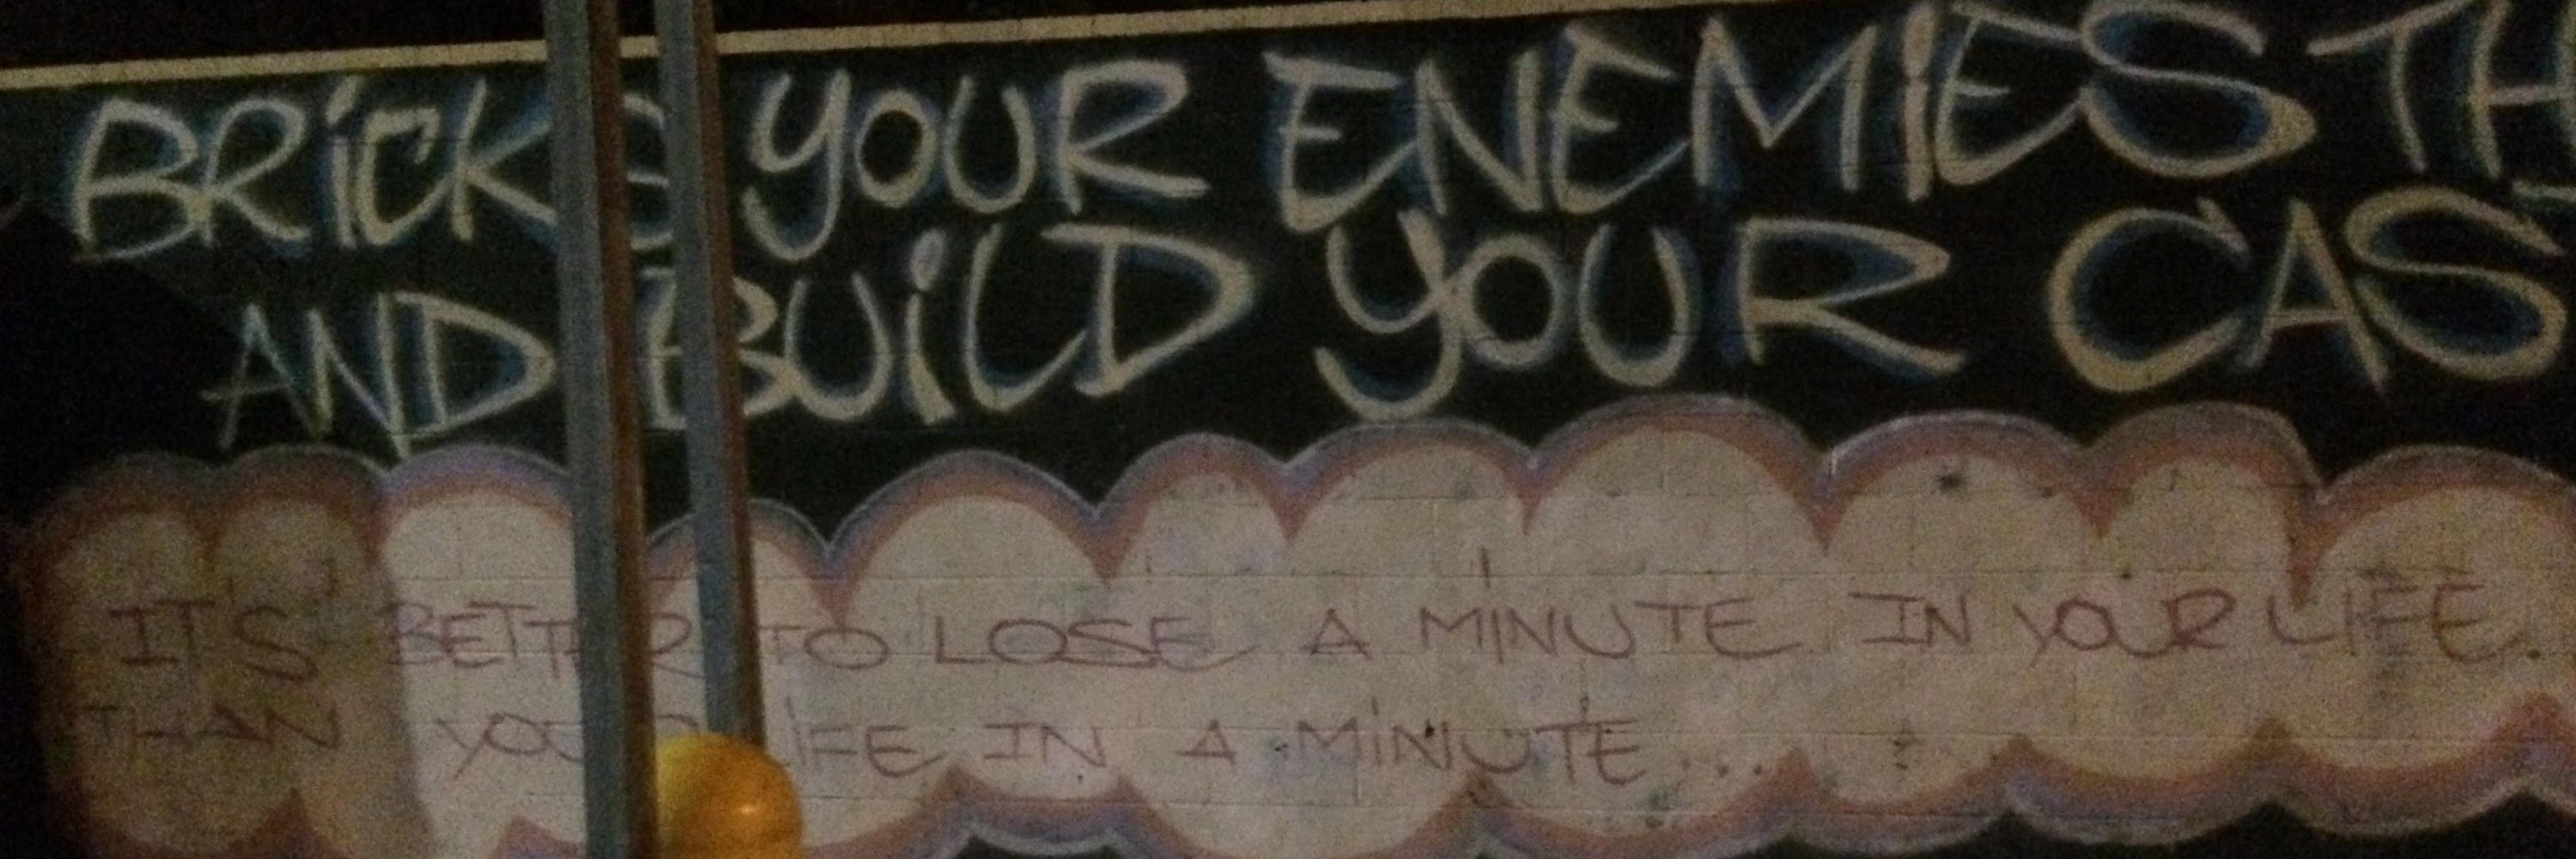 BRiCKS YOUR ENEMiES TH
AND BUiLD YOUR CAS
ITS BETTER TO LOSE A MINUTE IN YOUR LIFE.
THAN YOUR LIFE IN A MiNUTE...